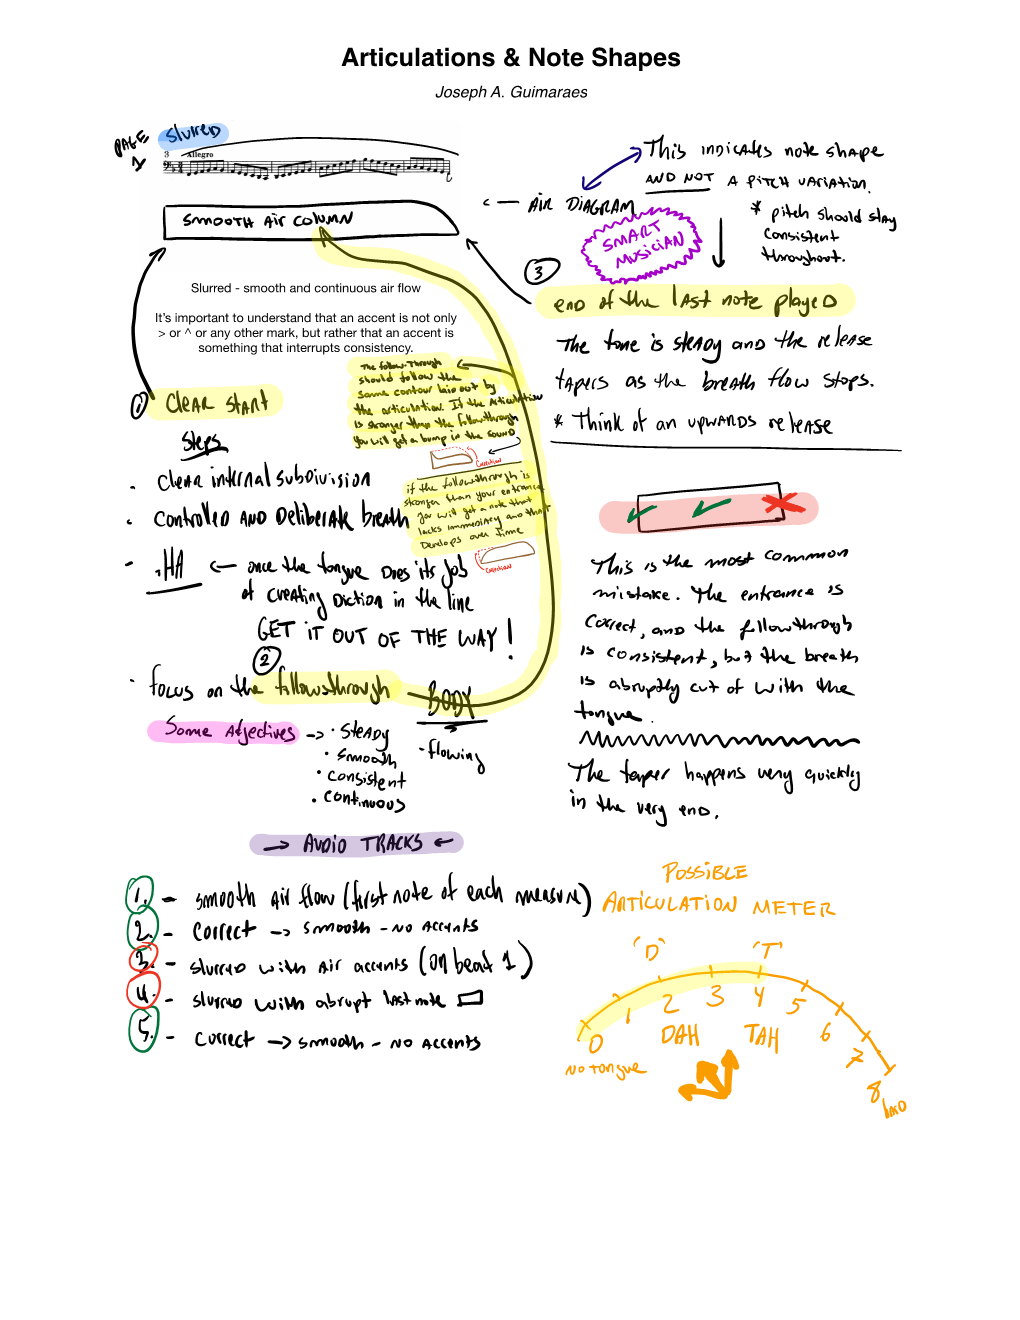 Articulations & Note Shapes
Joseph A. Guimaraes
PAGE 1
Slurred
3
Allegro
SMOOTH AIR COLUMN
<— AIR DIAGRAM
This indicates note shape
AND NOT A PITCH VARIATION.
* pitch should stay
consistent
throughout.
SMART
MUSICIAN
Slurred - smooth and continuous air flow
It's important to understand that an accent is not only
> or ^ or any other mark, but rather that an accent is
something that interrupts consistency.
3
end of the last note played
The tone is steady and the release
tapers as the breath flow stops.
* Think of an upwards release
The follow-Through
should follow the
same contour laid out by
the articulation. If the Articulation
is stronger than the followthrough
you will get a bump in the sound
Correction
if the followthrough is
stronger than your entrance
you will get a note that
lacks immediacy and that
Develops over time
Correction
1
Clear start
Steps
- Clear internal subdivision
- Controlled and Deliberate breath
- .HA <— once the tongue does its job
of creating Diction in the line
GET IT OUT OF THE WAY!
2
- focus on the followthrough
BODY
- flowing
Some Adjectives -> · Steady
· smooth
· consistent
· continuous
This is the most common
mistake. The entrance is
correct, and the followthrough
is consistent, but the breath
is abruptly cut of with the
tongue.
The taper happens very quickly
in the very end.
-> AUDIO TRACKS <-
1. - smooth air flow (first note of each measure)
2. - Correct -> smooth - no accents
3. - slurred with Air accents (on beat 1)
4. - slurred with abrupt last note
5. - Correct -> smooth - no accents
POSSIBLE
ARTICULATION METER
'D' 'T'
0 1 2 3 4 5 6 7 8
DAH TAH
No tongue
hard